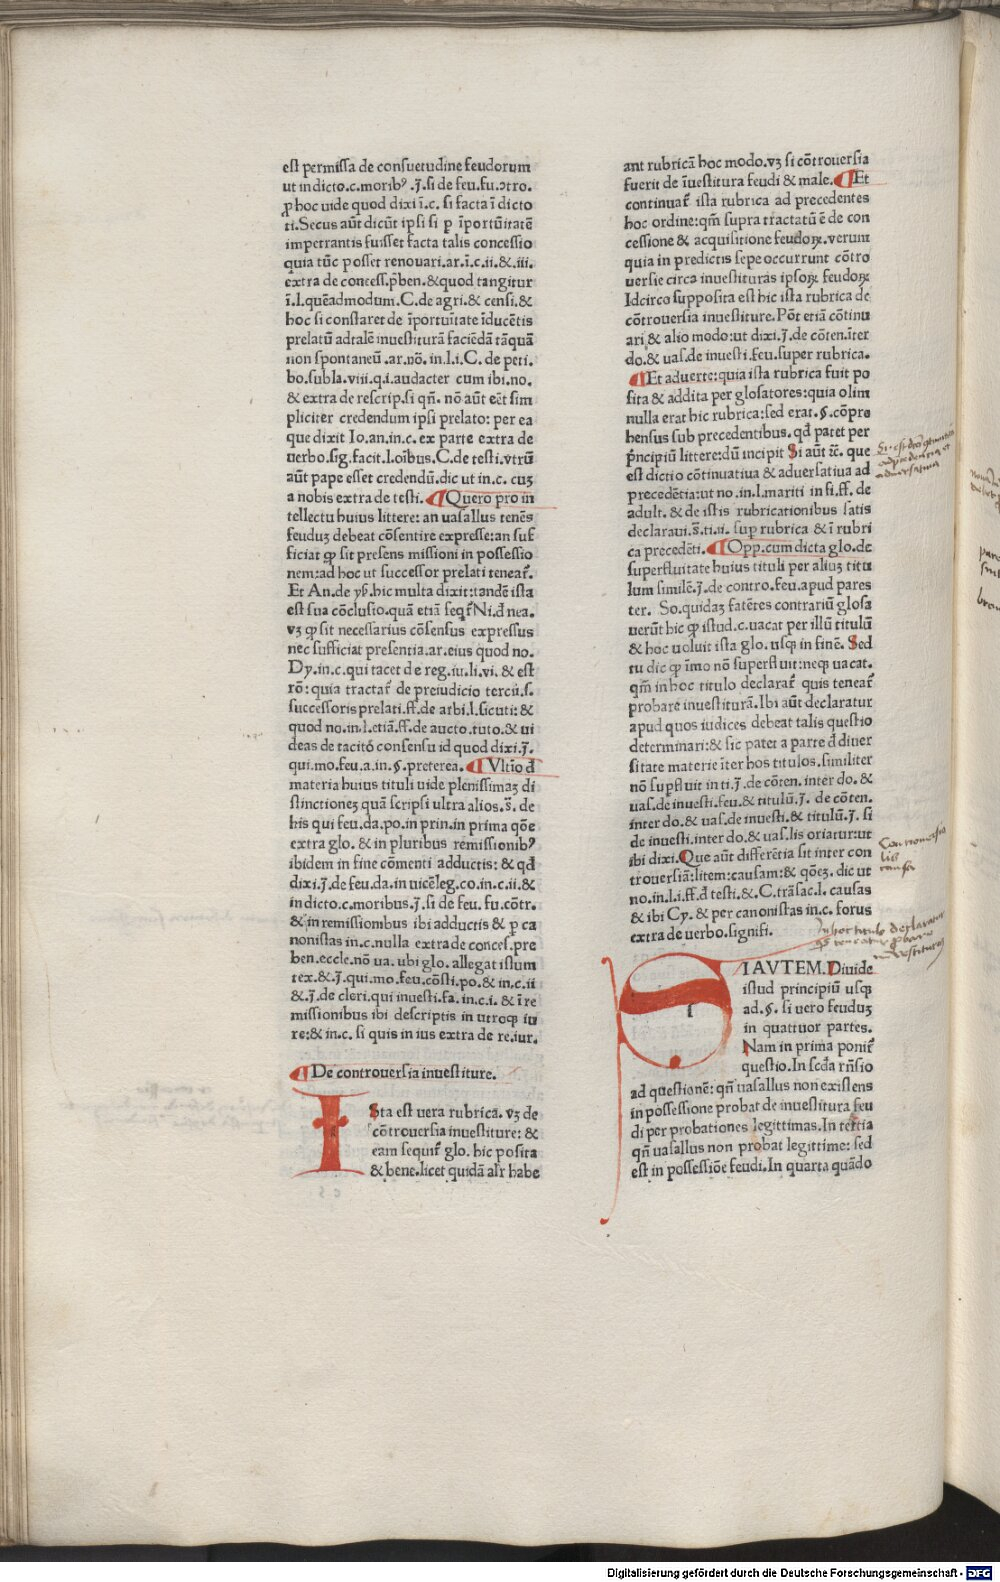 est permissa de consuetudine feudorum
ut in dicto.c.moribꝰ.ȷ̃.si de feu.fu.ↄtro.
ꝓ hoc uide quod dixi ĩ.c. si facta ĩ dicto
ti.Secus aũt dicũt ipsi si ꝑ ĩportũitatẽ
impetrantis fuisset facta talis concessio
quia tũc posset renouari.ar.ĩ.c.ii.&.iii.
extra de concess.p̃ben.&quod tangitur
ĩ.l.quẽadmodum.C.de agri.& censi.&
hoc si constaret de ĩportuĩtate ĩducẽtis
prelatũ ad talẽ inuestiturã faciẽdã tãquã
non spontaneũ.ar.nõ.in.l.i.C. de peti.
bo.subla.viii.q.i.audacter cum ibi.no.
& extra de rescrip.si qñ. nõ aũt eẽt sim
pliciter credendum ipsi prelato: per ea
que dixit Io.an.in.c. ex parte extra de
uerbo.sig.facit.l.oĩbus.C.de testi.vtrũ
aũt pape esset credendũ.dic ut in.c. cuʒ
a nobis extra de testi. ¶Quero pro in
tellectu huius littere: an uasallus tenẽs
feuduʒ debeat cõsentire expresse:an suf
ficiat ꝙ sit presens missioni in possessio
nem:ad hoc ut successor prelati teneat̃.
Et An.de yſ̃.hic multa dixit:tandẽ ista
est sua cõclusio.quã etiã seqt̃ Ni.d̃ nea.
vʒ ꝙ sit necessarius cõsensus expressus
nec sufficiat presentia.ar.eius quod no.
Dy.in.c.qui tacet de reg.iu.li.vi. & est
rõ: quia tractat̃ de preiudicio tercii.s.
successoris prelati.ff.de arbi.l.sicuti: &
quod no.in.l.etiã.ff.de aucto.tuto.& ui
deas de tacitõ consensu id quod dixi.ȷ̃.
qui.mo.feu.a.in.§.preterea. ¶Vltio d̃
materia huius tituli uide plenissimaʒ di
stinctioneʒ quã scripsi ultra alios.s̃. de
his qui feu.da.po.in prin.in prima qõe
extra glo. & in pluribus remissionibꝰ
ibidem in fine cõmenti adductis: & qd̃
dixi.ȷ̃.de feu.da.in uicẽ leg.co.in.c.ii.&
in dicto.c.moribus.ȷ̃.si de feu. fu.cõtr.
& in remissionibus ibi adductis & ꝑ ca
nonistas in.c.nulla extra de conces.pre
ben.eccle.nõ ua. ubi glo. allegat istum
tex.&.ȷ̃.qui.mo.feu.cõsti.po.& in.c.ii
&.ȷ̃.de cleri.qui inuesti.fa. in.c.i. & ĩ re
missionibus ibi descriptis in utroqꝫ iu
re:& in.c. si quis in ius extra de re.iur.
¶De controuersia inuestiture.
ISta est uera rubrica. vʒ de
cõtrouersia inuestiture: &
eam sequit̃ glo. hic posita
& bene.licet quidã alr̃ habe
ant rubricã hoc modo.vʒ si cõtrouersia
fuerit de ĩuestitura feudi & male. ¶Et
continuat̃ ista rubrica ad precedentes
hoc ordine:qm̃ supra tractatũ ẽ de con
cessione & acquisitione feudoꝝ.verum
quia in predictis sepe occurrunt cõtro
uersie circa inuestituras ipsoꝝ feudoꝝ
Idcirco supposita est hic ista rubrica de
cõtrouersia inuestiture. Põt etiã cõtinu
ari & alio modo:ut dixi.ȷ̃.de cõten.ĩter
do.& uas.de inuesti.feu.super rubrica.
¶Et aduerte:quia ista rubrica fuit po
sita & addita per glosatores:quia olim
nulla erat hic rubrica:sed erat.§.cõpre
hensus sub precedentibus. qd̃ patet per
p̃ncipiũ littere:dũ incipit Si aũt ⁊c. que
est dictio cõtinuatiua & aduersatiua ad
precedẽtia:ut no.in.l.mariti in fi.ff. de
adult. & de istis rubricationibus satis
declaraui.s̃.ti.ii. suꝑ rubrica & ĩ rubri
ca precedẽti. ¶Opp.cum dicta glo.de
superfluitate huius tituli per aliuʒ titu
lum similẽ.ȷ̃.de contro.feu.apud pares
ter. So.quidaʒ fatẽtes contrariũ glosa
uerũt hic ꝙ istud.c.uacat per illũ titulũ
& hoc uoluit ista glo. usqꝫ in finẽ. Sed
tu dic ꝙ ĩmo nõ superfluit:neqꝫ uacat.
qm̃ in hoc titulo declarat̃ quis teneat̃
probare inuestiturã.Ibi aũt declaratur
apud quos iudices debeat talis questio
determinari:& sic patet a parte d̃ diuer
sitate materie ĩter hos titulos.similiter
nõ suꝑfluit in ti.ȷ̃.de cõten. inter do. &
uas.de inuesti.feu.& titulũ.ȷ̃. de cõten.
inter do.& uas.de inuesti.& titulũ.ȷ̃. si
de inuesti.inter do.& uas.lis oriatur:ut
ibi dixi.Que aũt differẽtia sit inter con
trouersiã:litem:causam:& qõeʒ. dic ut
no.in.l.i.ff.d̃ testi.& C.trãsac.l. causas
& ibi Cy. & per canonistas in.c. forus
extra de uerbo.signifi.
SI AVTEM.Diuide
istud principiũ usqꝫ
ad.§. si uero feuduʒ
in quattuor partes.
Nam in prima ponit̃
questio.In scd̃a rñsio
ad questionẽ: qñ uasallus non existens
in possessione probat de inuestitura feu
di per probationes legittimas.In tertia
qñ uasallus non probat legittime: sed
est in possessiõe feudi.In quarta quãdo
aduersatiua
Controuersia
lis
causa
In hoc titulo declaratur
inuestituraʒ
Digitalisierung gefördert durch die Deutsche Forschungsgemeinschaft - DFG